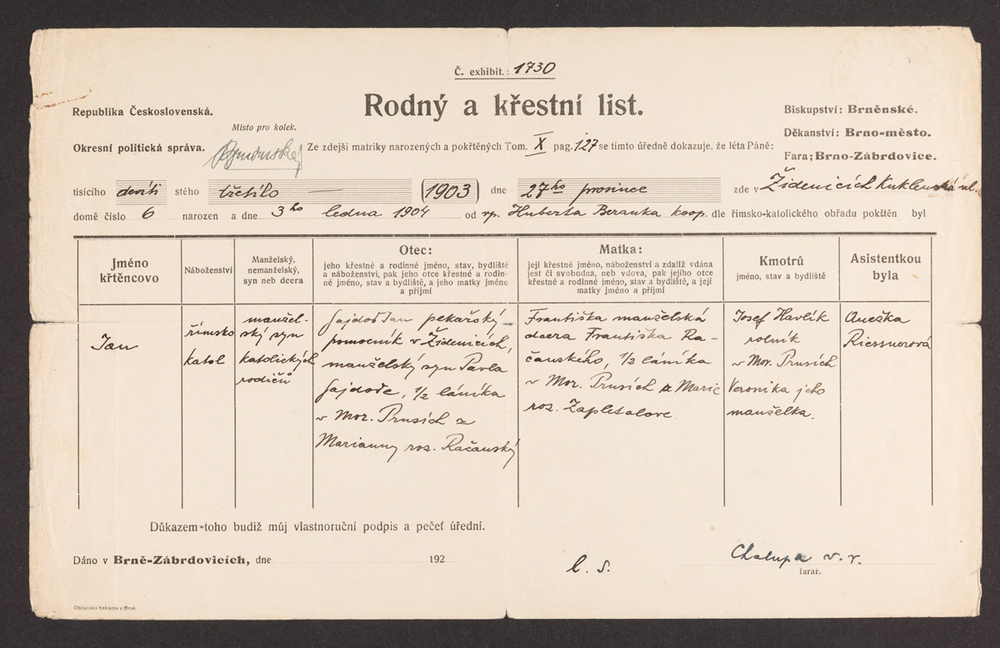 Č. exhibit.: 1730
Rodný a křestní list.
Republika Československá.
Biskupství: Brněnské.
Místo pro kolek.
Děkanství: Brno-město.
Okresní politická správa.
Ze zdejší matriky narozených a pokřtěných Tom. X pag. 127 se tímto úředně dokazuje, že léta Páně:
Fara: Brno-Zábrdovice.
tisícího devíti stého třetího — (1903) dne 27ho prosince zde v Židenicích Kuklenská ul.
domě číslo 6 narozen a dne 3ho ledna 1904 od vp. Huberta Beranka koop. dle římsko-katolického obřadu pokřtěn byl
Jméno
křtěncovo
Náboženství
Manželský,
nemanželský,
syn neb dcera
Otec:
jeho křestné a rodinné jméno, stav, bydliště
a náboženství, pak jeho otce křestné a rodin-
né jméno, stav a bydliště, a jeho matky jméno
a příjmí
Matka:
její křestné jméno, náboženství a zdaliž vdána
jest či svobodna, neb vdova, pak jejího otce
křestné a rodinné jméno, stav a bydliště, a její
matky jméno a příjmí
Kmotrů
jméno, stav a bydliště
Asistentkou
byla
Jan
římsko
katol
manžel-
ský syn
katolických
rodičů
Gajdoš Jan pekařský
pomocník v Židenicích,
manželský syn Pavla
Gajdoše, 1/2 láníka
v Mor. Prusích a
Marianny roz. Račanský
Františka manželská
dcera Františka Ra-
čanského, 1/2 láníka
v Mor. Prusích a Marie
roz. Zapletalove
Josef Havlík
rolník
v Mor. Prusích
Veronika jeho
manželka.
Anežka
Riessnerová
Důkazem toho budiž můj vlastnoruční podpis a pečeť úřední.
Dáno v Brně-Zábrdovicích, dne 192
L. S.
Chalupa v. r.
farář.
Občanská tiskárna v Brně